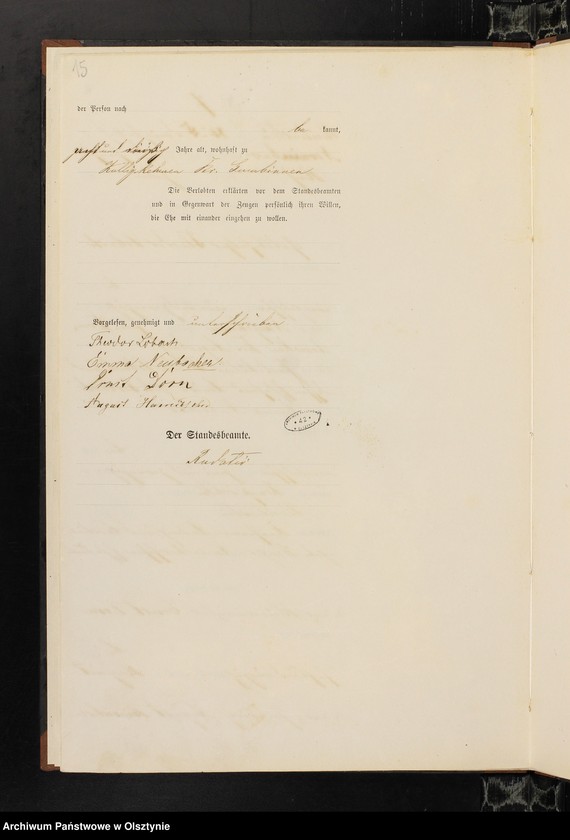 15
der Person nach
be kannt,
und Jahre alt, wohnhaft zu
Kr. Gumbinnen
Die Verlobten erklärten vor dem Standesbeamten
und in Gegenwart der Zeugen persönlich ihren Willen,
die Ehe mit einander eingehen zu wollen.
Vorgelesen, genehmigt und unterschrieben
Theodor Lobach
Emma Neubacher
Ernst Dorn
August
Der Standesbeamte.
Archiwum Państwowe w Olsztynie